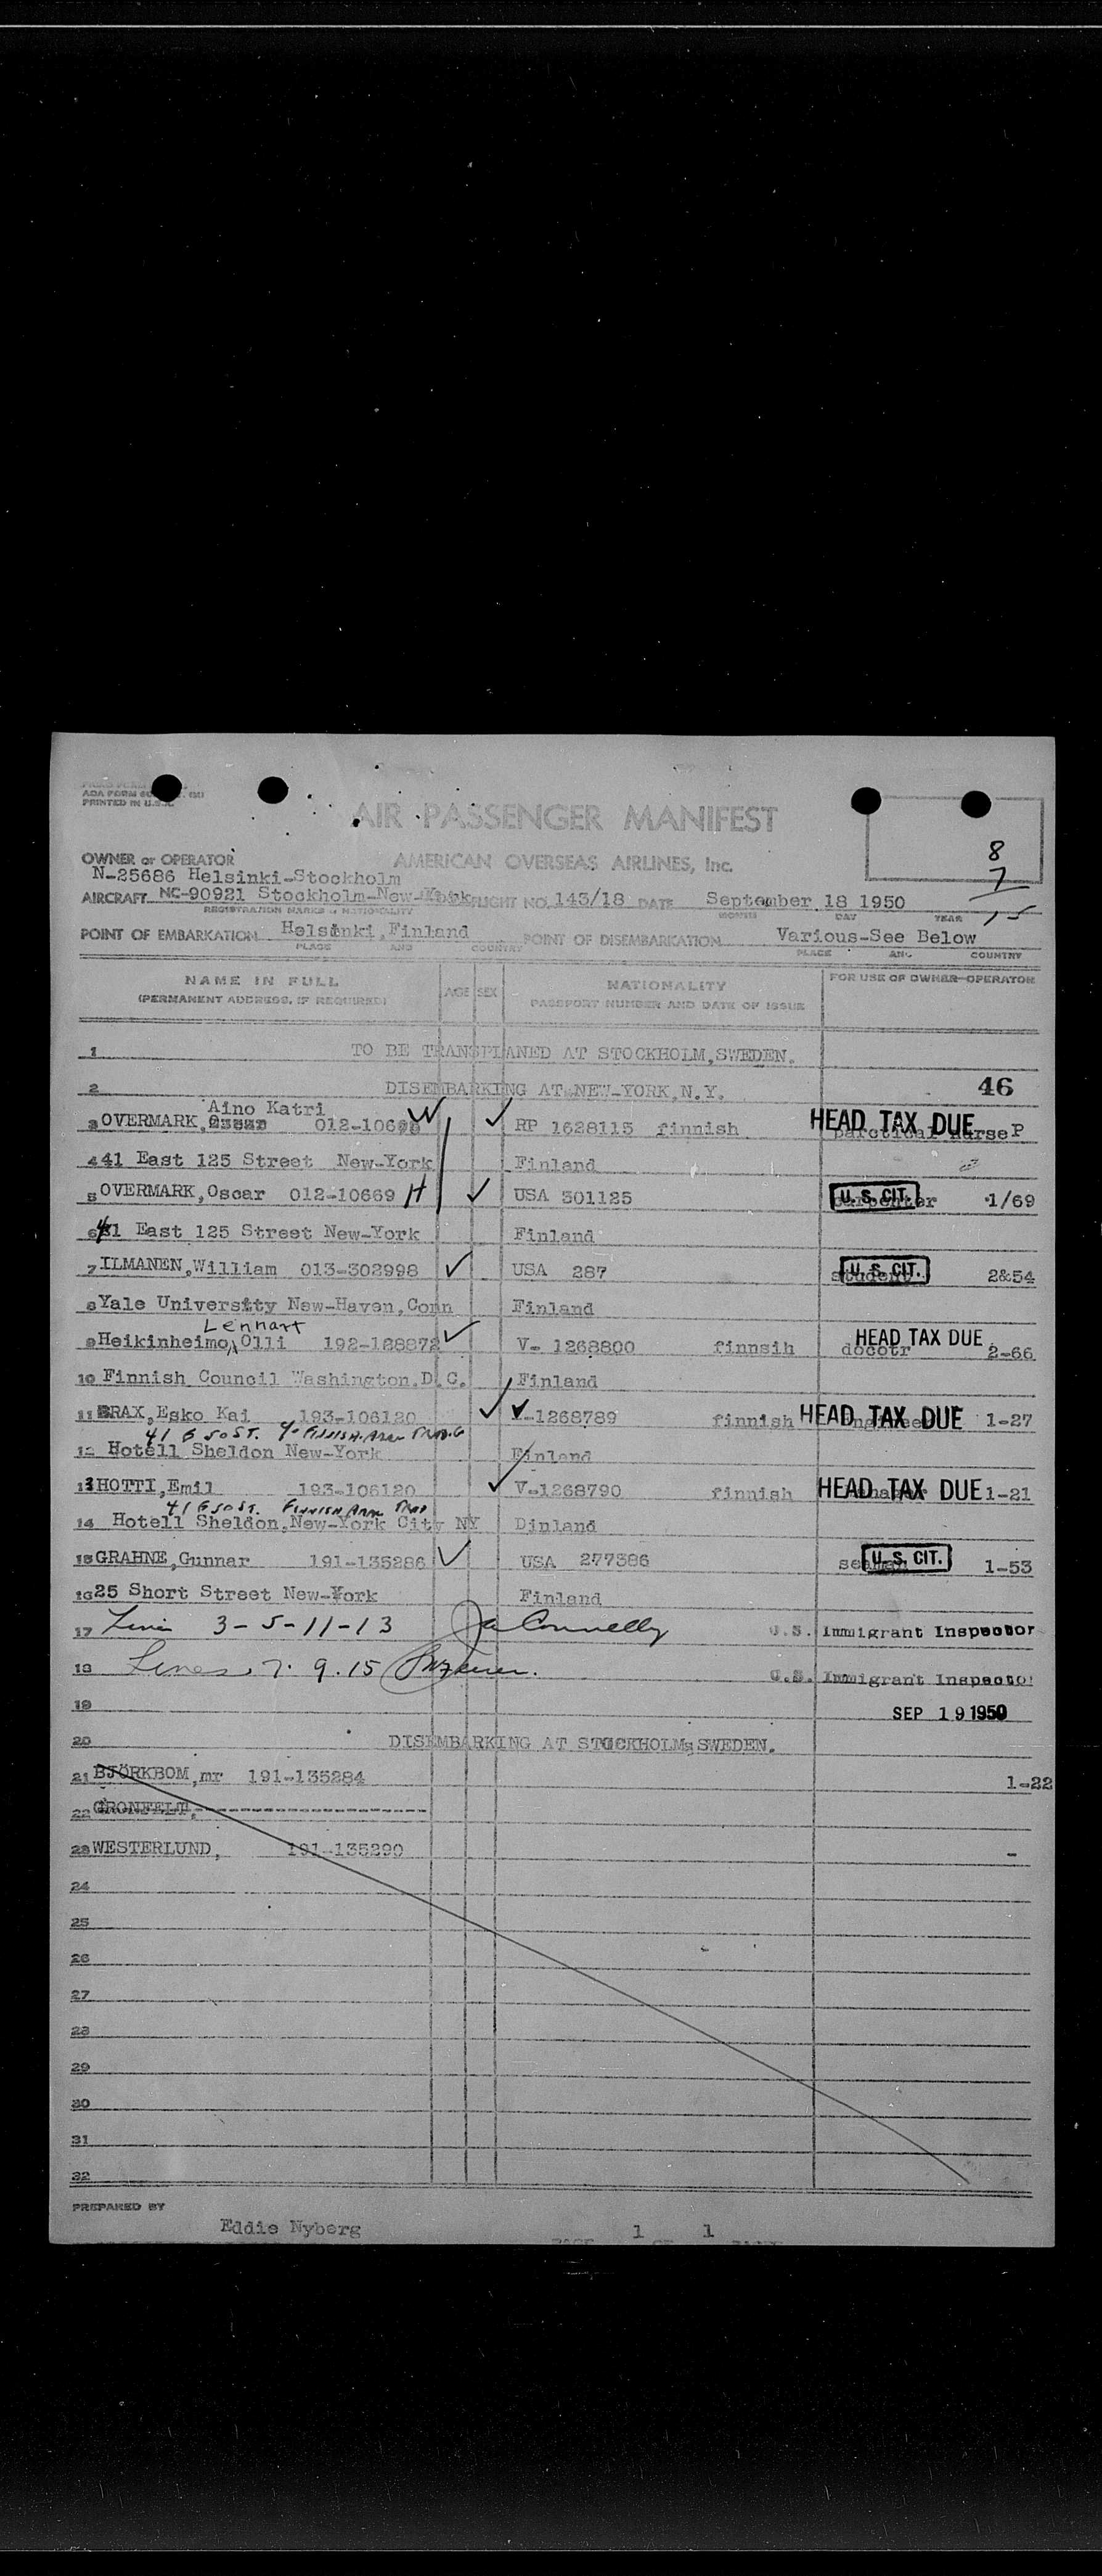 ADA FORM
PRINTED IN U.S.A.
AIR PASSENGER MANIFEST
OWNER or OPERATOR AMERICAN OVERSEAS AIRLINES, Inc.
8
7
15
N-25686 Helsinki-Stockholm
AIRCRAFT NC-90921 Stockholm-New-York FLIGHT NO. 143/18 DATE September 18 1950
REGISTRATION MARKS & NATIONALITY MONTH DAY YEAR
POINT OF EMBARKATION Helsinki, Finland POINT OF DISEMBARKATION Various-See Below
PLACE AND COUNTRY PLACE AND COUNTRY
NAME IN FULL AGE SEX NATIONALITY FOR USE OF OWNER-OPERATOR
(PERMANENT ADDRESS, IF REQUIRED) PASSPORT NUMBER AND DATE OF ISSUE
1 TO BE TRANSPLANED AT STOCKHOLM, SWEDEN.
2 DISEMBARKING AT NEW-YORK, N.Y. 46
Aino Katri W
3 OVERMARK, 012-106 RP 1628115 finnish parctical nurse P HEAD TAX DUE
4 41 East 125 Street New-York Finland
5 OVERMARK, Oscar 012-10669 H USA 501125 carpenter U.S. CIT. 1/69
6 41 East 125 Street New-York Finland
7 ILMANEN, William 013-302998 USA 287 student U.S. CIT. 2&54
8 Yale University New-Haven, Conn Finland
Lennart
9 Heikinheimo, Olli 192-128872 V- 1268800 finnsih docotr HEAD TAX DUE 2-66
10 Finnish Council Washington. D.C. Finland
11 BRAX, Esko Kai 193-106120 V-1268789 finnish HEAD TAX DUE 1-27
41 E 50 ST. % FINNISH. AM
12 Hotell Sheldon New-York Finland
13 HOTTI, Emil 193-106120 V-1268790 finnish HEAD TAX DUE 1-21
41 E 50 ST. FINNISH AM
14 Hotell Sheldon, New-York City NY Dinland
15 GRAHNE, Gunnar 191-135286 USA 277386 seaman U.S. CIT. 1-53
16 25 Short Street New-York Finland
17 Lines 3-5-11-13 Ja Connelly U.S. Immigrant Inspector
18 Lines. 7. 9. 15 U.S. Immigrant Inspector
19 SEP 19 1950
20 DISEMBARKING AT STOCKHOLM, SWEDEN.
21 BJÖRKBOM, mr 191-135284 1-22
22 GRONFELT,
23 WESTERLUND, 191-135290 -
24
25
26
27
28
29
30
31
32
PREPARED BY
Eddie Nyberg 1 1